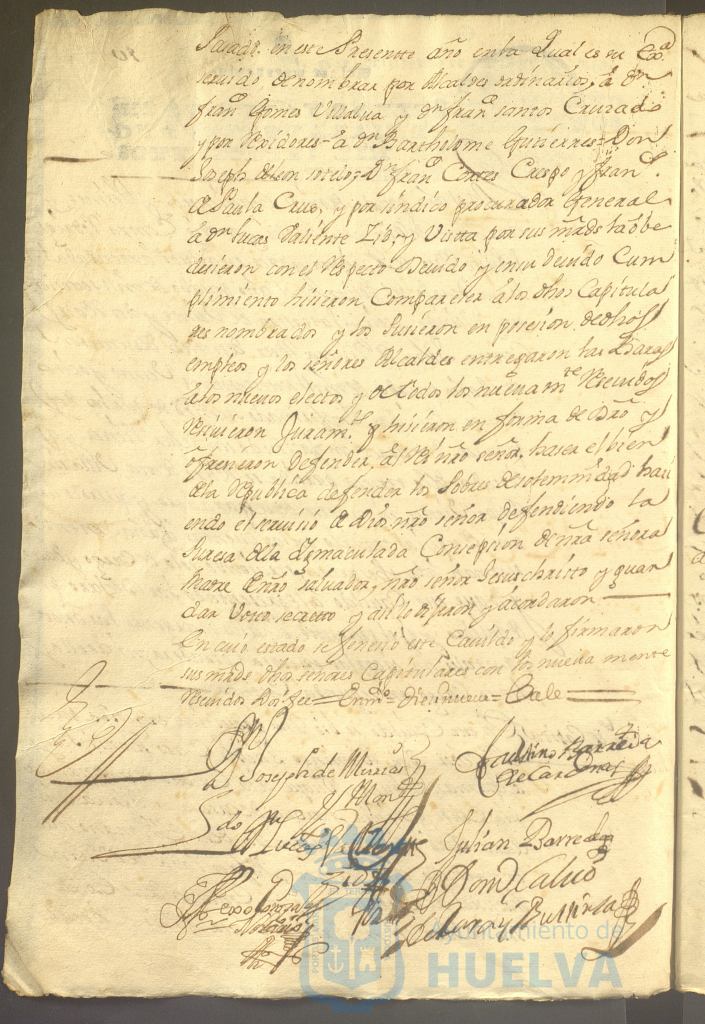 en este Presentte año en la Qual es su Exª
servido de nombrar por Alcaldes ordinarios, â dn
franco Gomes Villalva y dn franco santos Cruzado
y por Rexidores â dn Barthólome Gutierres = Don
Joseph de leon sotelo; Dn franco Cortes Crespo y franco
de Paula Crus, y por sindico procurador General
â dn lucas Valiente y Vistta por sus mrds la obe
decieron con el Respecto Devido y en su devido Cum
plimiento hisieron Comparecer â los dhos Capitula
res nombrados y los pusieron en posesion de dhos
empleos y los señores Alcaldes entregaron las Baras
â los nuevos electos y de todos los nuevamte Resividos
Resivieron Juramto q hisieron en forma de dro y
ofresieron defender al Rey nro señor, haser el bien
de la Republica defender los Pobres de solemnidad hasi
endo el servisio de Dios nro señor defendiendo la
Puresa de la Inmaculada Consepcion de nra señora
Madre de nro salvador, nro señor Jesuchristo y guar
dar Voto secretto y assi lo dijeron y acordaron
En cuio estado se fenesio este Cavildo y lo firmaron
sus mrds dhos señores Capitulares con los nueva mente
Resividos Doi fee = Enmdo = Dies nueve = Vale
Dn Joseph de
Faustino Barreda
de Cardenas
Julian Barreda
Dn Lucas
Domo Calvo
Ayuntamiento de
HUELVA